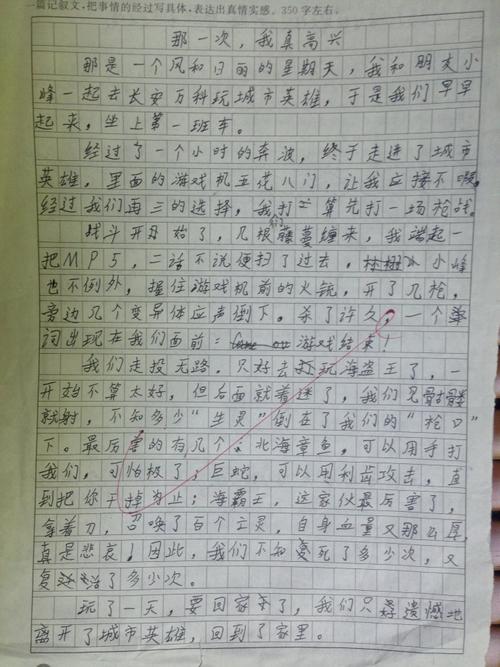 一篇记叙文,把事情的经过写具体,表达出真情实感。350字左右。
那一次,我真高兴
那是一个风和日丽的星期天,我和朋友小
峰一起去长安万科玩城市英雄,于是我们早早
起来,坐上第一班车。
经过了一个小时的奔波,终于走进了城市
英雄,里面的游戏机五花八门,让我应接不暇。
经过我们再三的选择,我们打算先打一场枪战。
战斗开始了,几根藤蔓缠来,我端起一
把MP5,二话不说便扫了过去,小峰
也不例外,握住游戏机前的火铳,开了几枪,
旁边几个变异体应声倒下。杀了许久,一个单
词出现在我们面前:游戏结束!
我们走投无路,只好去玩海盗王了,一
开始不算太好,但后面就着迷了,我们见骷髅
就射,不知多少“生灵”倒在了我们的“枪口”
下。最厉害的有几个:北海章鱼,可以用手打
我们,可怕极了;巨蛇,可以用利齿攻击,直
到把你干掉为止;海霸王,这家伙最厉害了,
拿着刀,召唤了百个亡灵,自身血量又那么厚,
真是悲哀!因此,我们不知死了多少次,又
复活了多少次。
玩了一天,要回家了,我们只遗憾地
离开了城市英雄,回到了家里。